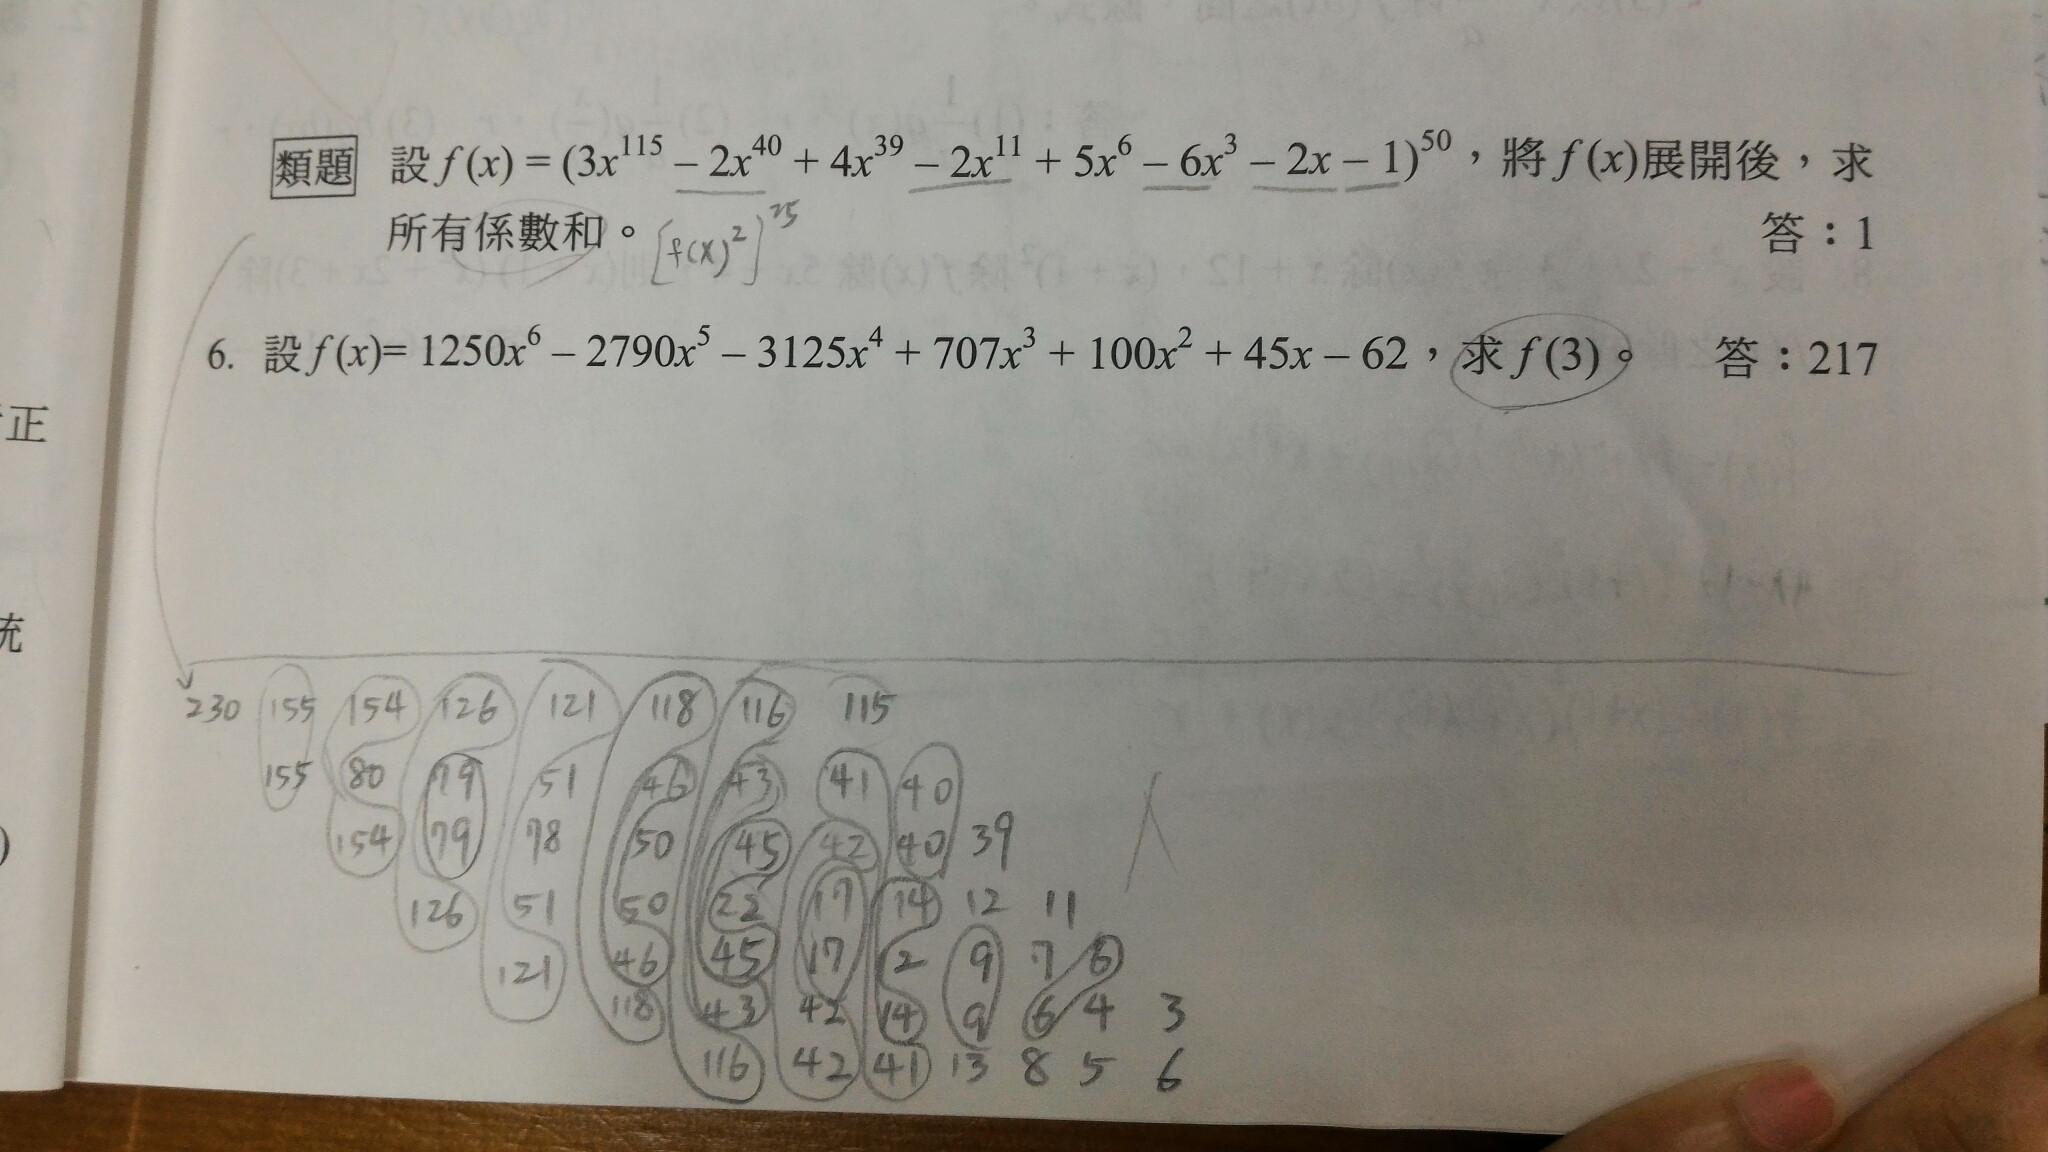 類題 設 f(x) = (3x¹¹⁵ − 2x⁴⁰ + 4x³⁹ − 2x¹¹ + 5x⁶ − 6x³ − 2x − 1)⁵⁰，將 f(x)展開後，求
所有係數和。 [f(x)²]²⁵ 答：1
6. 設 f(x)= 1250x⁶ − 2790x⁵ − 3125x⁴ + 707x³ + 100x² + 45x − 62，求 f(3)。 答：217
正
230 155 154 126 121 118 116 115
統
155 80 79 51 46 43 41 40
)
154 79 78 50 45 42 40 39
126 51 50 22 17 14 12 11
121 46 45 17 2 9 7 6
118 43 42 14 9 6 4 3
116 42 41 13 8 5 6